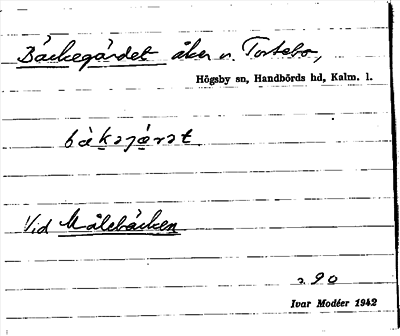 Bäckegärdet åker v. Tortebo,
Högsby sn, Handbörds hd, Kalm. l.
bàkəjáṛət
Vid Målebäcken
a. 90
Ivar Modéer 1942